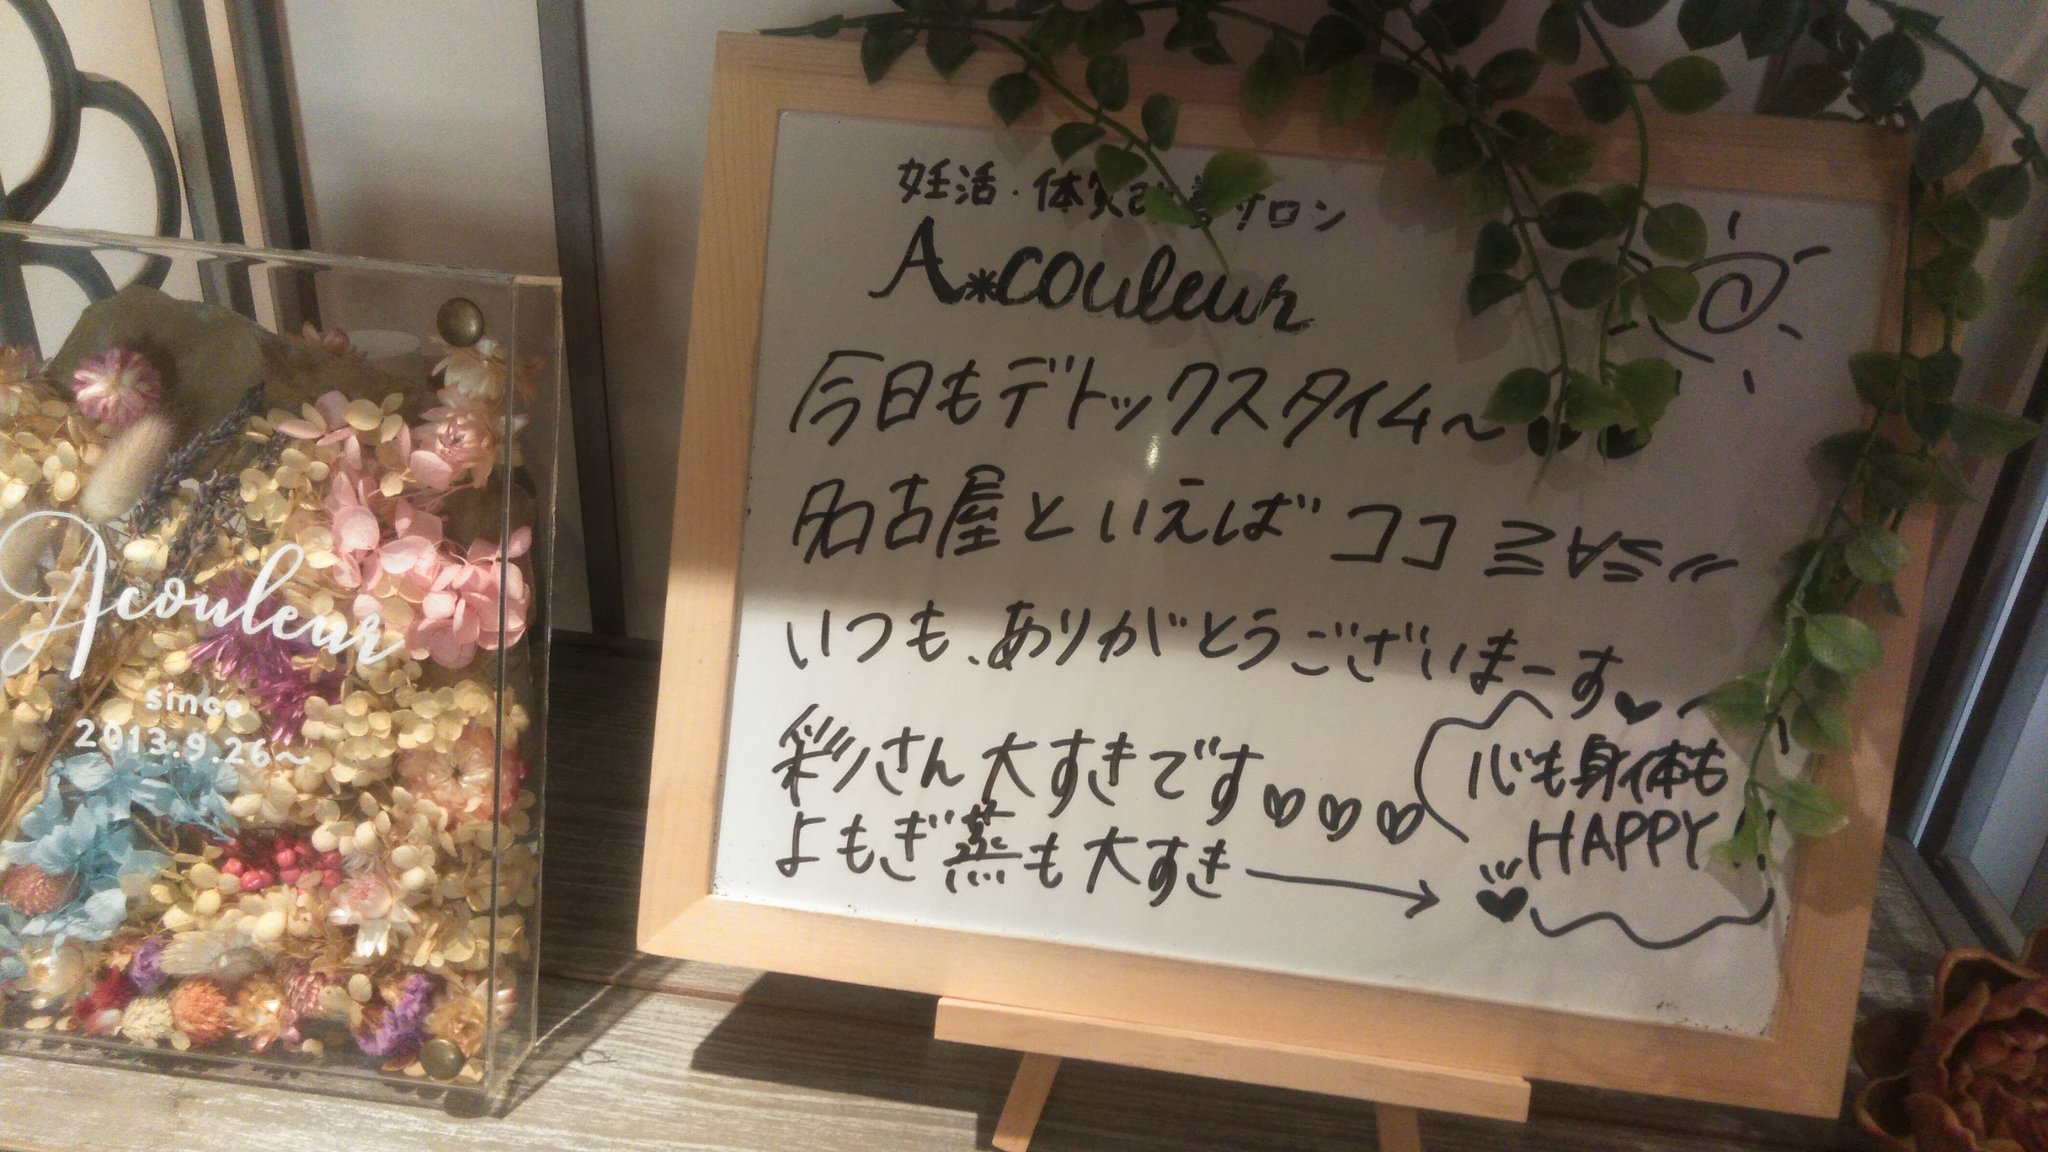 Acouleur
since
2013.9.26～
妊活・体質改善サロン
A*couleur
今日もデトックスタイム～
名古屋といえばココ ミ∀ミ〃
いつも、ありがとうございまーす♥
彩さん大すきです♡♡♡
よもぎ蒸も大すき →
心も身体も
HAPPY!!